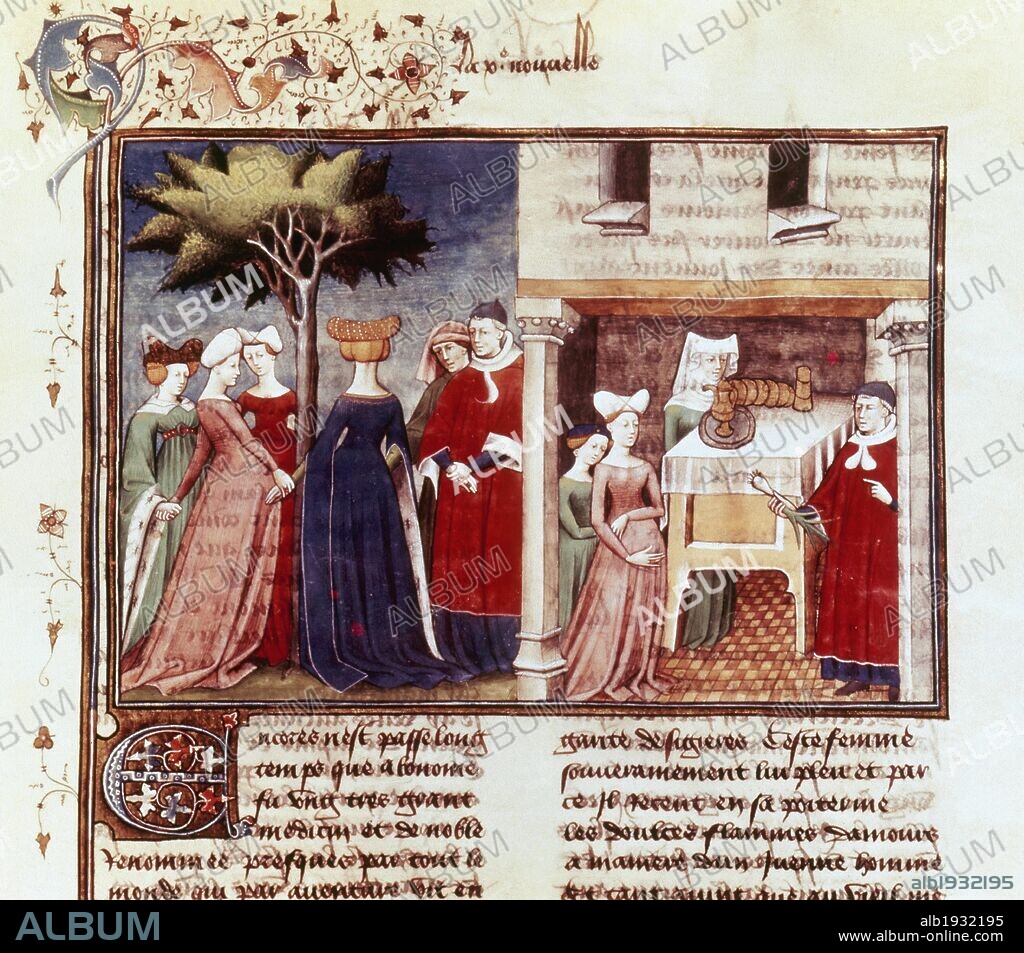 la x nouuelle
Encores nest passe long
temps que a bonome
fu vng tres grant
medicin et de noble
renommee presques par tout le
monde qui par auenture vit en
ceste femme
souuerainement lui pleut et par
ce Il Recent en sa poiterine
les doulces flammes damours
a maniere dun Juenne homme
alb1932195
ALBUM
alb1932195
www.album-online.com